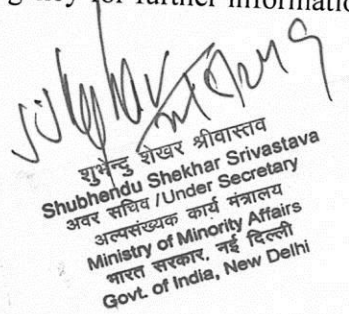 for further informatio
शुभेन्दु शेखर श्रीवास्तव
Shubhendu Shekhar Srivastava
अवर सचिव /Under Secretary
अल्पसंख्यक कार्य मंत्रालय
Ministry of Minority Affairs
भारत सरकार, नई दिल्ली
Govt. of India, New Delhi